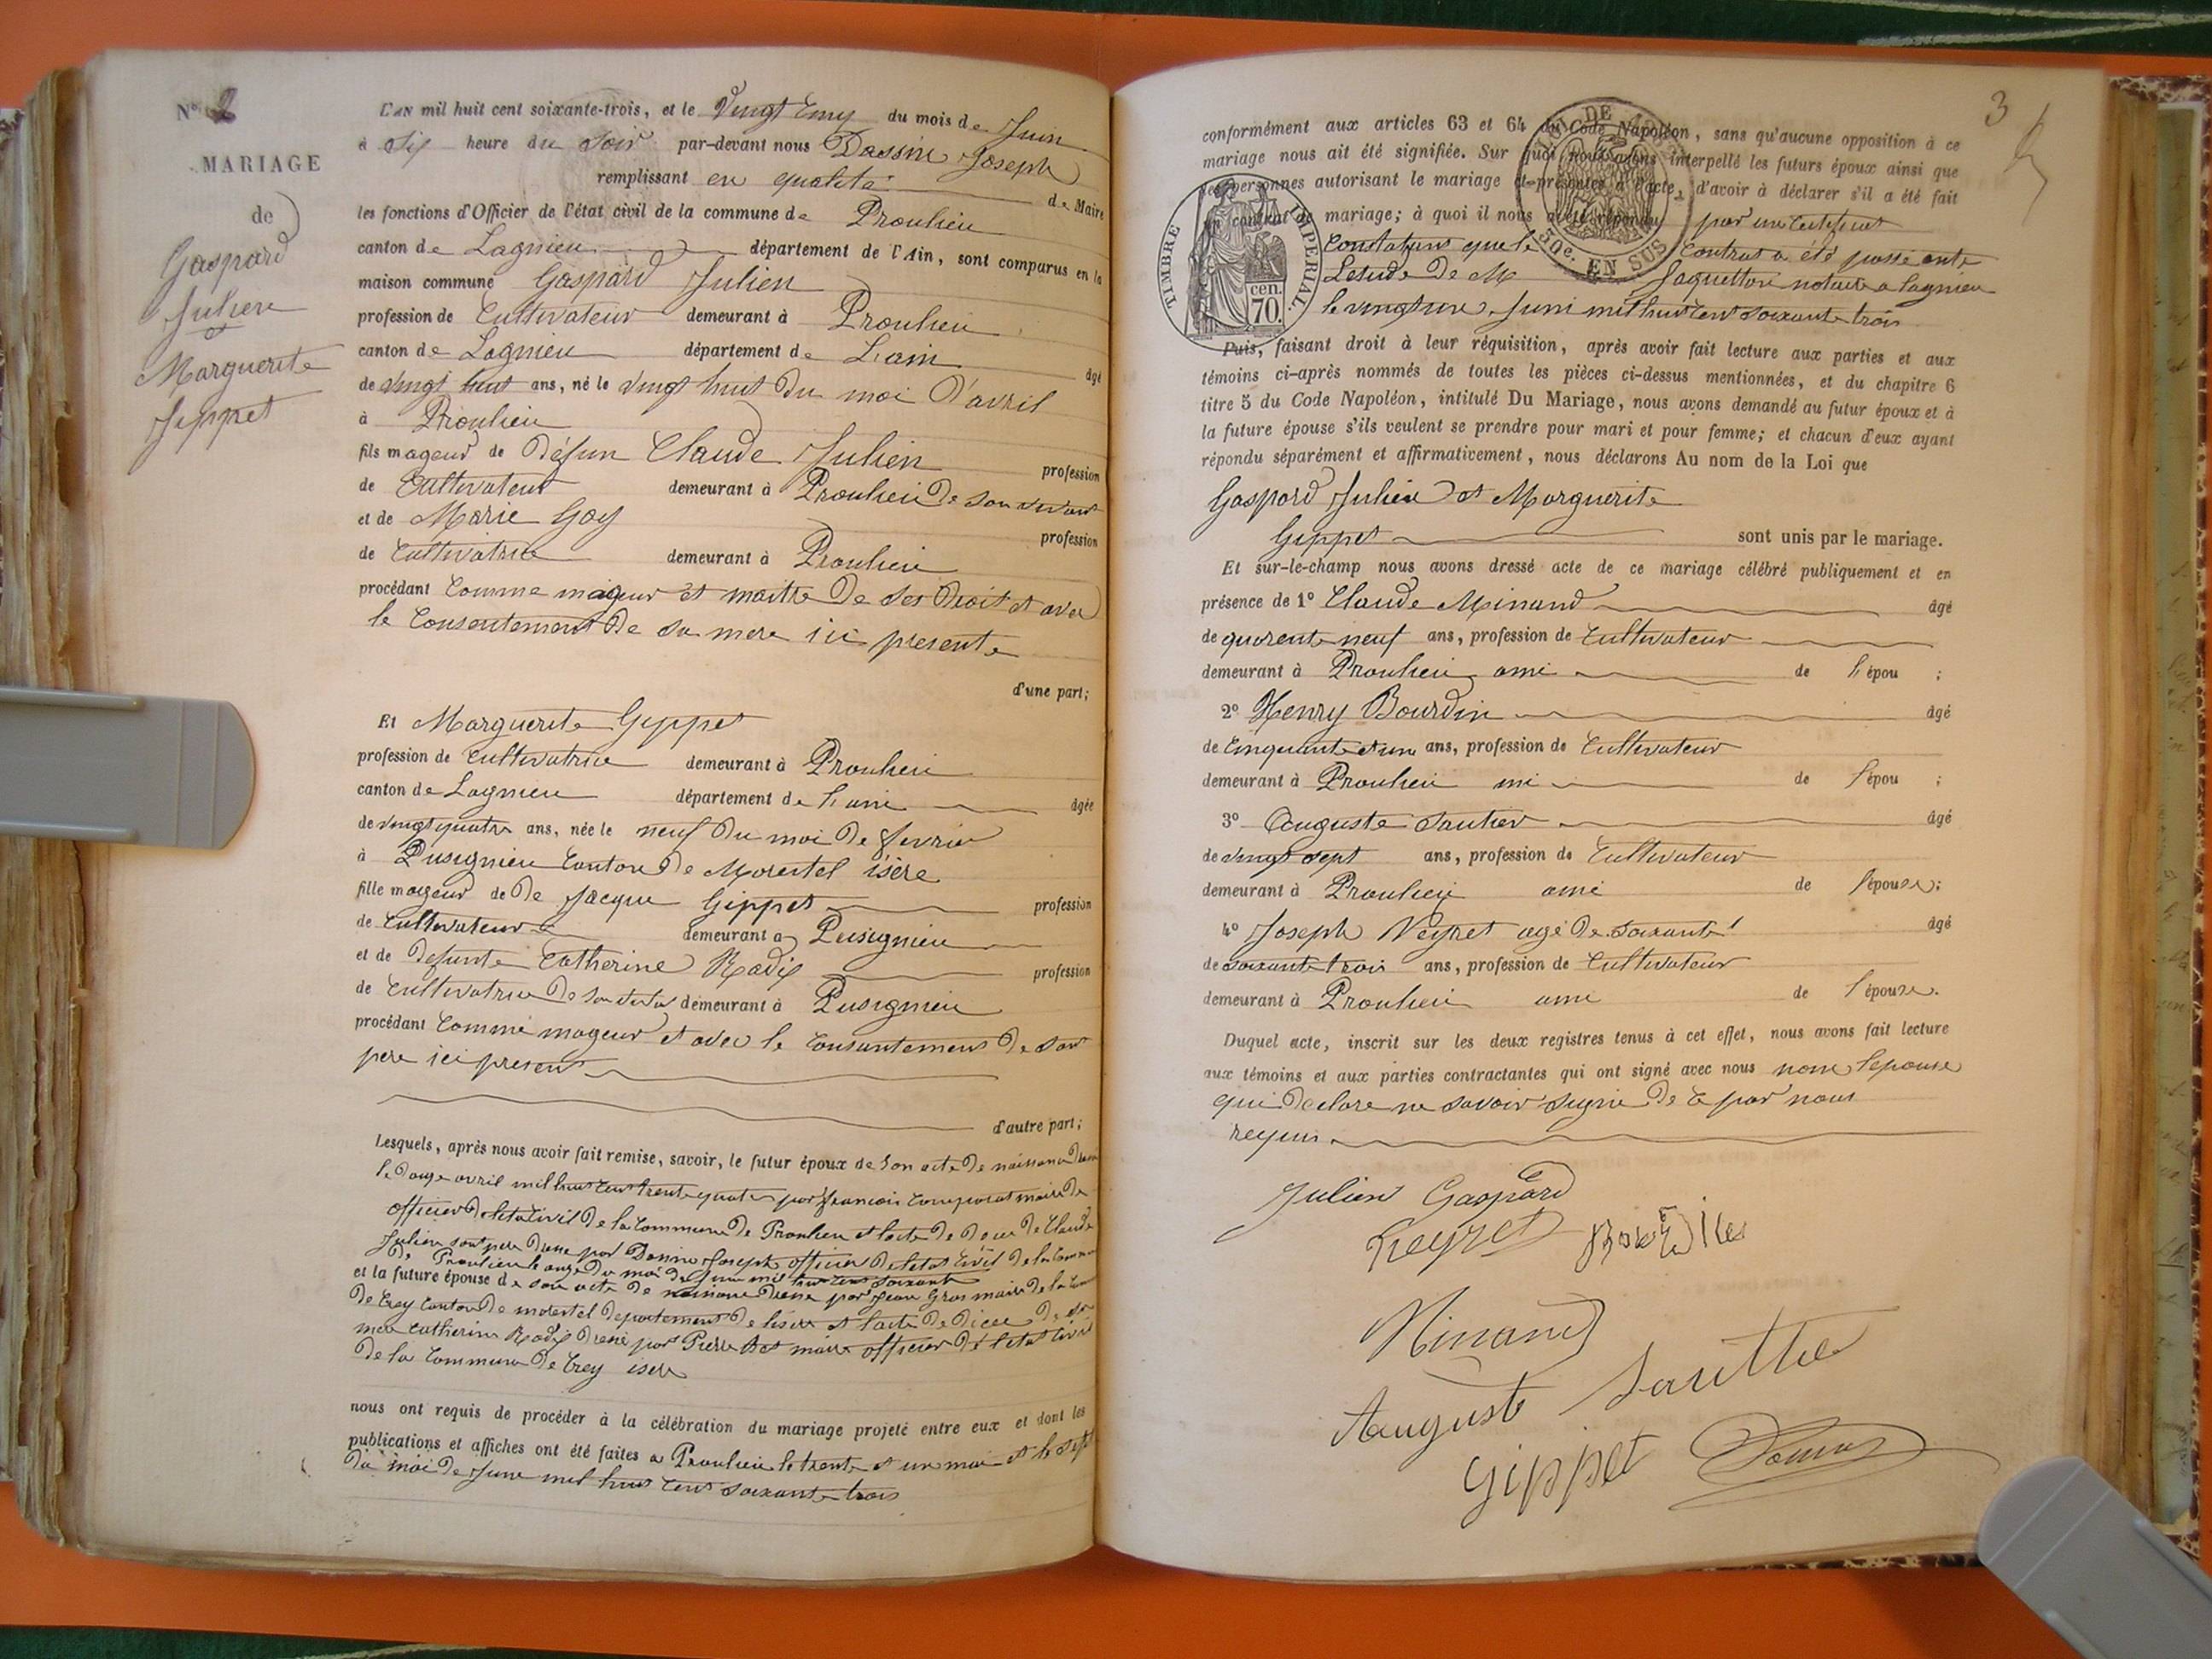 N° 2
MARIAGE
de
Gaspard
Julien
et
Marguerite
Gippet
L'AN mil huit cent soixante-trois, et le Vingt Cinq du mois de Juin
à Six heure du Soir par-devant nous Dassin Joseph
remplissant en qualité de Maire
les fonctions d'Officier de l'état civil de la commune de Proulieu
canton de Lagnieu département de l'Ain, sont comparus en la
maison commune Gaspard Julien
profession de Cultivateur demeurant à Proulieu
canton de Lagnieu département de L'ain âgé
de vingt huit ans, né le vingt huit du moi d'avril
à Proulieu
fils mageur de défun Claude Julien profession
de Cultivateur demeurant à Proulieu de son vivant
et de Marie Goy profession
de Cultivatrice demeurant à Proulieu
procédant Comme mageur et maitre de ses droit et avec
le Consentement de sa mere ici presente
d'une part;
Et Marguerite Gippet
profession de Cultivatrice demeurant à Proulieu
canton de Lagnieu département de L'ain âgée
de vingt quatre ans, née le neuf du moi de fevrier
à Pusignieu Canton de Morestel isère
fille mageur de De Jacque Gippet profession
de Cultivateur demeurant à Pusignieu
et de Defunte Catherine Rodix profession
de Cultivatrice De son viva demeurant à Pusignieu
procédant Comme mageur et avec le Consantement de son
pere ici present
d'autre part;
Lesquels, après nous avoir fait remise, savoir, le futur époux de son acte de naissance
le douze avril mil huit cent trente quatre par francois maire de
officier de letat Civil de la Commune de Proulieu et lacte de de Claude
Julien sont pere dresse par Dassin Joseph officier de letat Civil de la Commune
de Proulieu le onze du moi de Juin mil huit cent soixante
et la future épouse de son acte de naissance dresse par Jean Gros maire de la Com
de Crey Canton de morestel departement de lisère et lacte de de sa
mere Catherine Rodix dresse par Pierre maire officier de letat civil
de la Commune de Crey isere
nous ont requis de procéder à la célébration du mariage projeté entre eux et dont les
publications et affiches ont été faites a Proulieu le trente et un mai et le sept
du moi de Juin mil huit Cent soixante trois
3
conformément aux articles 63 et 64 du Code Napoléon, sans qu'aucune opposition à ce
mariage nous ait été signifiée. Sur quoi nous avons interpellé les futurs époux ainsi que
les personnes autorisant le mariage et présentes à l'acte, d'avoir à déclarer s'il a été fait
un contrat de mariage; à quoi il nous a été répondu par un Certificat
Constatant que le Contrat a été passé ante
Letude de M Jaquetton notaire a lagnieu
le vingt Juin mil huit Cent soixante trois
TIMBRE IMPERIAL
cen. 70.
50c. EN SUS
Puis, faisant droit à leur réquisition, après avoir fait lecture aux parties et aux
témoins ci-après nommés de toutes les pièces ci-dessus mentionnées, et du chapitre 6
titre 5 du Code Napoléon, intitulé Du Mariage, nous avons demandé au futur époux et à
la future épouse s'ils veulent se prendre pour mari et pour femme; et chacun d'eux ayant
répondu séparément et affirmativement, nous déclarons Au nom de la Loi que
Gaspard Julien et Marguerite
Gippet sont unis par le mariage.
Et sur-le-champ nous avons dressé acte de ce mariage célébré publiquement et en
présence de 1° Claude Minand âgé
de quarente neuf ans, profession de Cultivateur
demeurant à Proulieu ami de l'épou ;
2° Henry Bourdin âgé
de Cinquante et un ans, profession de Cultivateur
demeurant à Proulieu mi de l'épou ;
3° Auguste Sautier âgé
de vingt sept ans, profession de Cultivateur
demeurant à Proulieu ami de l'épouse;
4° Joseph Veyret agé de soixante âgé
de soixante trois ans, profession de Cultivateur
demeurant à Proulieu ami de l'épouse.
Duquel acte, inscrit sur les deux registres tenus à cet effet, nous avons fait lecture
aux témoins et aux parties contractantes qui ont signé avec nous non lepouse
qui declare ne savoir signé de Ce par nous
requis
Julien Gaspard
Veyret
Minand
Auguste Sauttie
Gippet